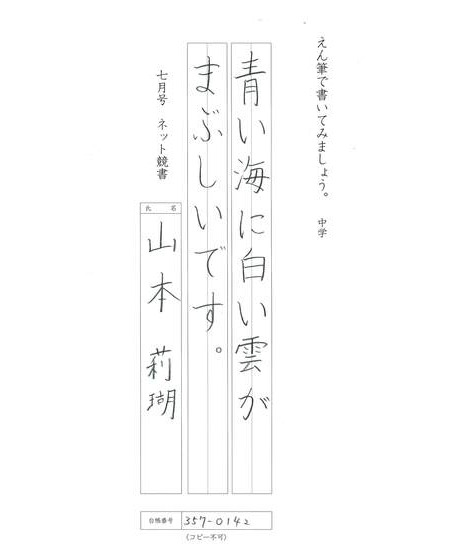 えん筆で書いてみましょう。 中学
青い海に白い雲が
まぶしいです。
七月号 ネット競書
氏 名
山本 莉瑚
台帳番号 357-0142
(コピー不可)